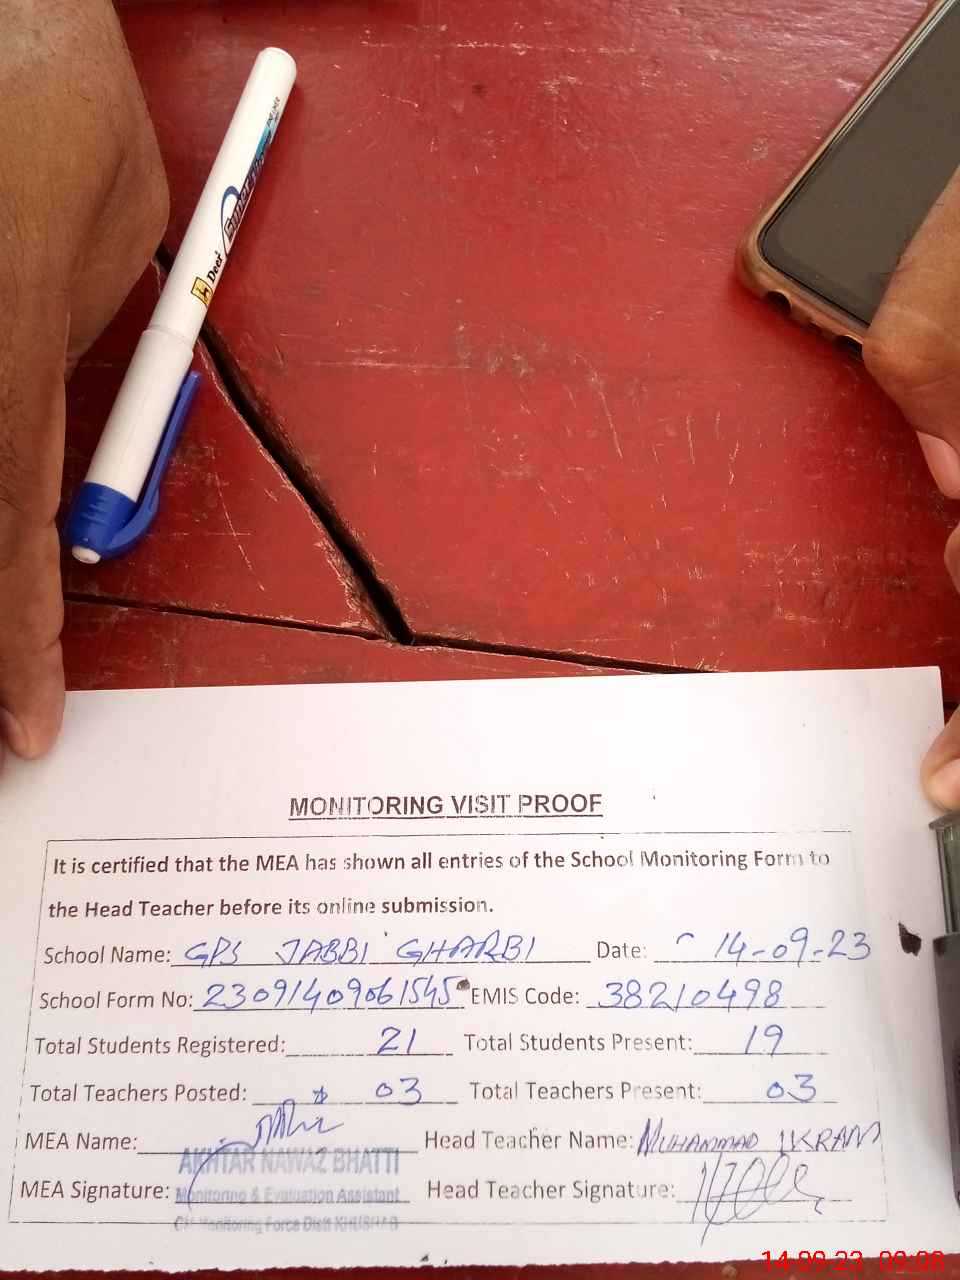 Deer
MONITORING VISIT PROOF
It is certified that the MEA has shown all entries of the School Monitoring Form to
the Head Teacher before its online submission.
School Name: GPS JABBI GHARBI Date: 14-09-23
School Form No: 23091409061545 EMIS Code: 38210498
Total Students Registered: 21 Total Students Present: 19
Total Teachers Posted: 03 Total Teachers Present: 03
MEA Name: Head Teacher Name: MUHAMMAD IKRAM
AKHTAR NAWAZ BHATTI
MEA Signature: Monitoring & Evaluation Assistant Head Teacher Signature:
Monitoring Force Distt KHUSHAB
14-09-23 09:08